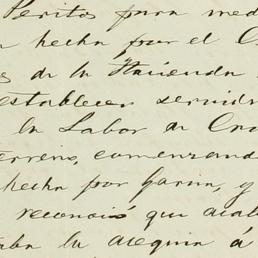 Peritos para med
hecha por el C
de la Hacienda
establecer servid
la Labor de Cru
terreno, comenzando
hecha por Garcia, y
reconoció que acab
aba la acequia á